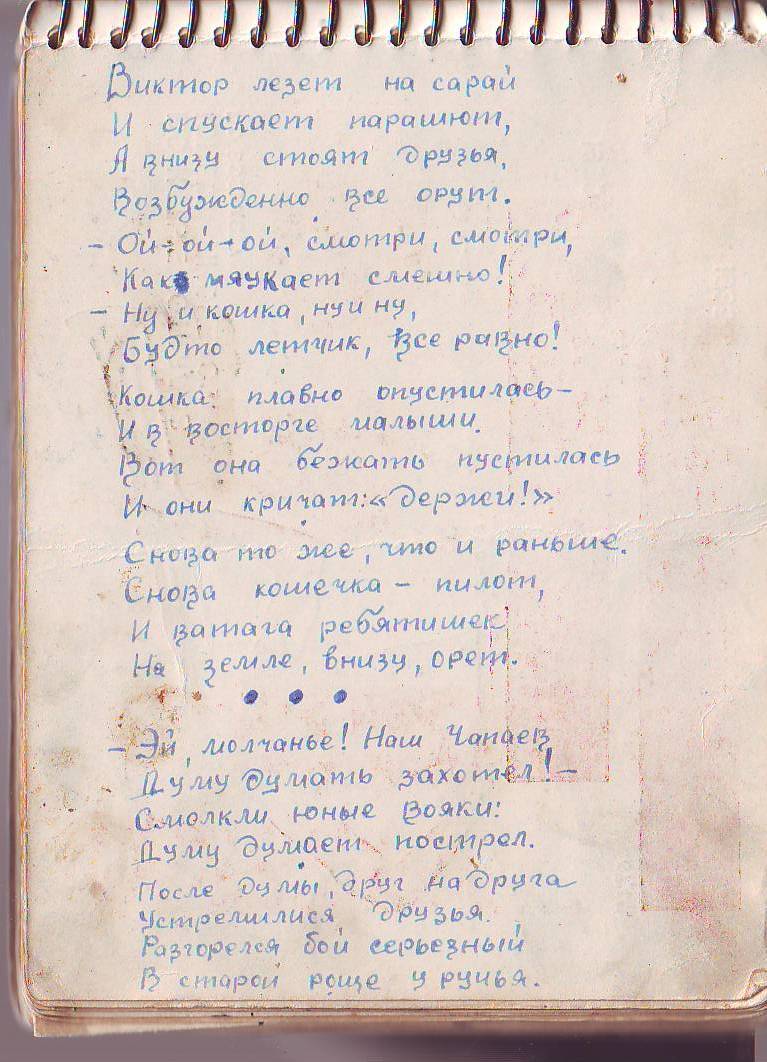 Виктор лезет на сарай
И спускает парашют,
А внизу стоят друзья,
Возбужденно все орут.
– Ой-ой-ой, смотри, смотри,
Как мяукает смешно!
– Ну и кошка, ну и ну,
Будто летчик, все равно!
Кошка плавно опустилась –
И в восторге малыши.
Вот она бежать пустилась
И они кричат: «держи!»
Снова то же, что и раньше.
Снова кошечка – пилот,
И ватага ребятишек
На земле, внизу, орет.
• • •
– Эй, молчанье! Наш Чапаев
Думу думать захотел! –
Смолкли юные вояки:
Думу думает пострел.
После думы, друг на друга
Устремилися друзья.
Разгорелся бой серьезный
В старой роще у ручья.